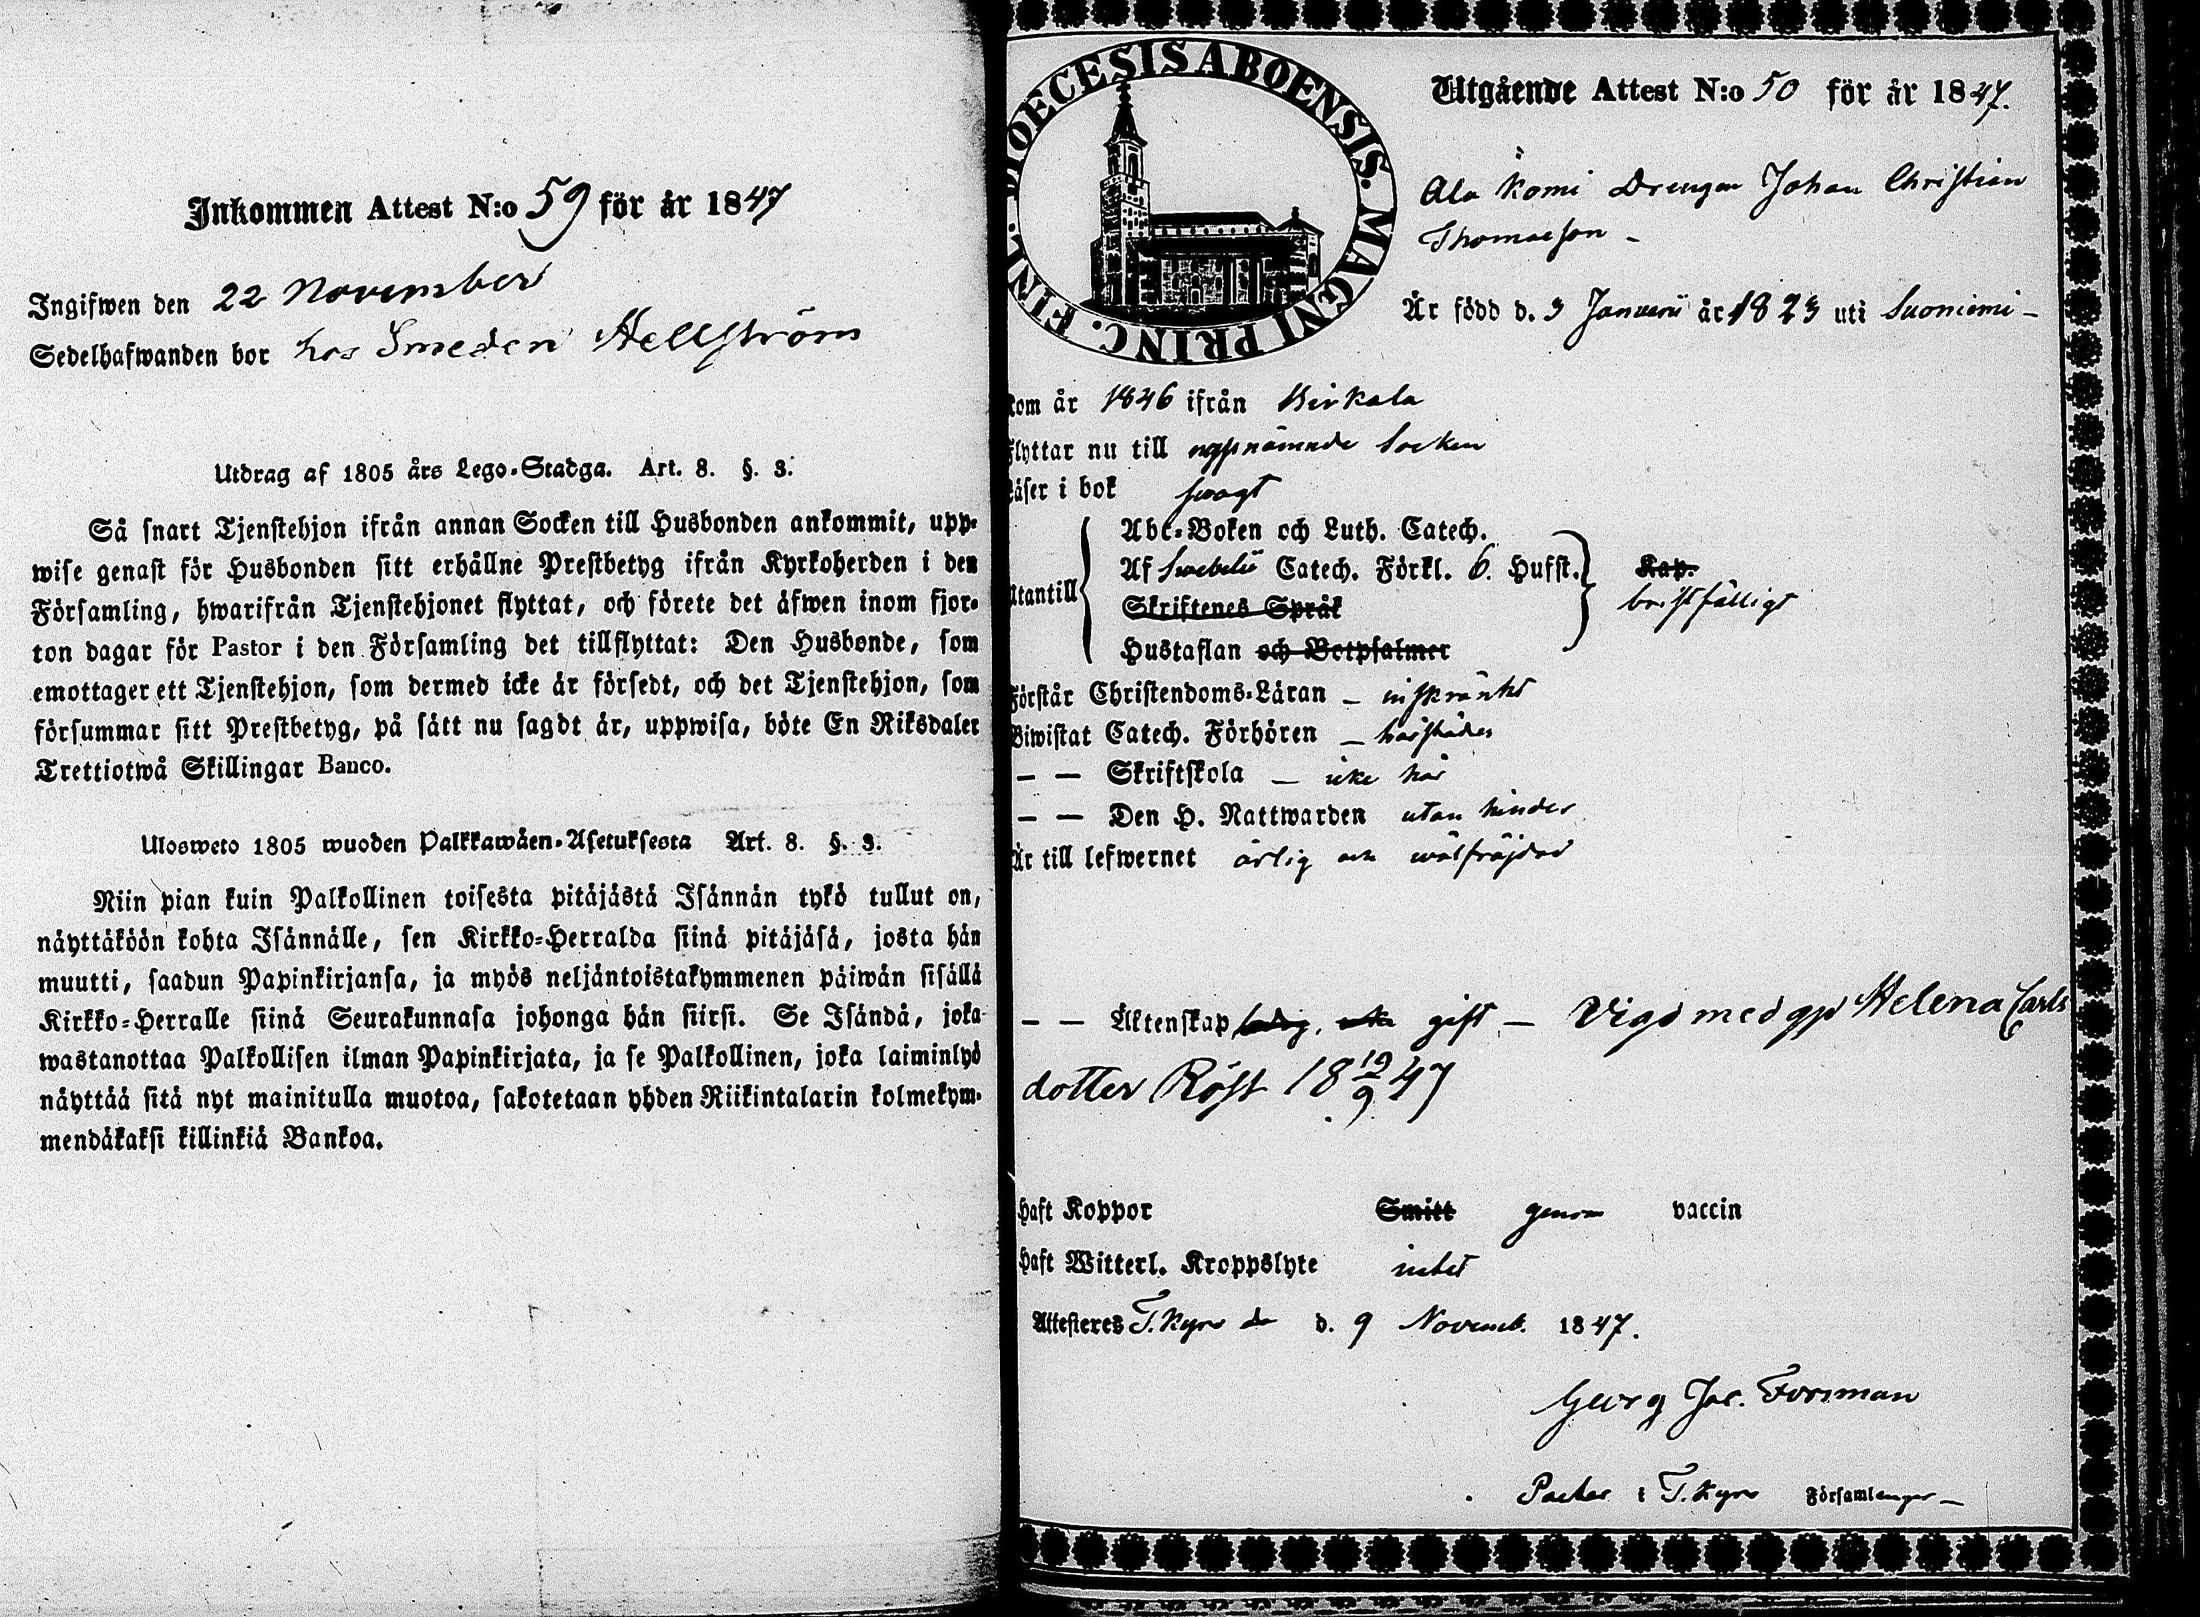 Inkommen Attest N:o 59 för år 1847
Ingifwen den 22 November
Sedelhafwanden bor hos Smeden Hellström
Utdrag af 1805 års Lego-Stadga. Art. 8. §. 3.
Så snart Tjenstehjon ifrån annan Socken till Husbonden ankommit, upp-
wise genast för Husbonden sitt erhållne Prestbetyg ifrån Kyrkoherden i den
Församling, hwarifrån Tjenstehjonet flyttat, och förete det äfwen inom fjor-
ton dagar för Pastor i den Församling det tillflyttat: Den Husbonde, som
emottager ett Tjenstehjon, som dermed icke är försedt, och det Tjenstehjon, som
försummar sitt Prestbetyg, på sätt nu sagdt är, uppwisa, böte En Riksdaler
Trettiotwå Skillingar Banco.
Ulosweto 1805 wuoden Palkkawäen-Asetuksesta Art. 8. §. 3.
Niin pian kuin Palkollinen toisesta pitäjästä Isännän tykö tullut on,
näyttäköön kohta Isännälle, sen Kirkko-Herralda siinä pitäjäsä, josta hän
muutti, saadun Papinkirjansa, ja myös neljäntoistakymmenen päiwän sisällä
Kirkko-Herralle siinä Seurakunnasa johonga hän siirsi. Se Isändä, joka
wastanottaa Palkollisen ilman Papinkirjata, ja se Palkollinen, joka laiminlyö
näyttää sitä nyt mainitulla muotoa, sakotetaan yhden Riikintalarin kolmekym-
mendäkaksi killinkiä Bankoa.
DIOECESIS ABOENSIS. MAGNI PRINC. FINL.
Utgående Attest N:o 50 för år 1847.
Ala Komi Drengen Johan Christian
Thomasson -
Är född d. 3 Januarii år 1823 uti Suoniemi -
kom år 1846 ifrån Birkala
Flyttar nu till uppnämnde Socken
Läser i bok swagt
Abc-Boken och Luth. Catech.
Af Swebelii Catech. Förkl. 6. Hufst. Kap.
Utantill Skriftenes Språk bristfälligt
Hustaflan och Botpsalmer
Förstår Christendoms-Läran - inskränkt
Biwistat Catech. Förhören -
— — Skriftskola - icke här
— — Den H. Nattwarden utan hinder
Är till lefwernet ärlig och wälfräjdad
— — Äktenskap ledig, gift - Vigd med gp Helena Carls
dotter Röst 18 19/9 47
Haft Koppor Smitt genom vaccin
Haft Witterl. Kroppslyte intet
Attesteres T. Kyro d. 9 Novemb. 1847.
Georg Jac. Forsman
Pastor i T. Kyro Församlingar -